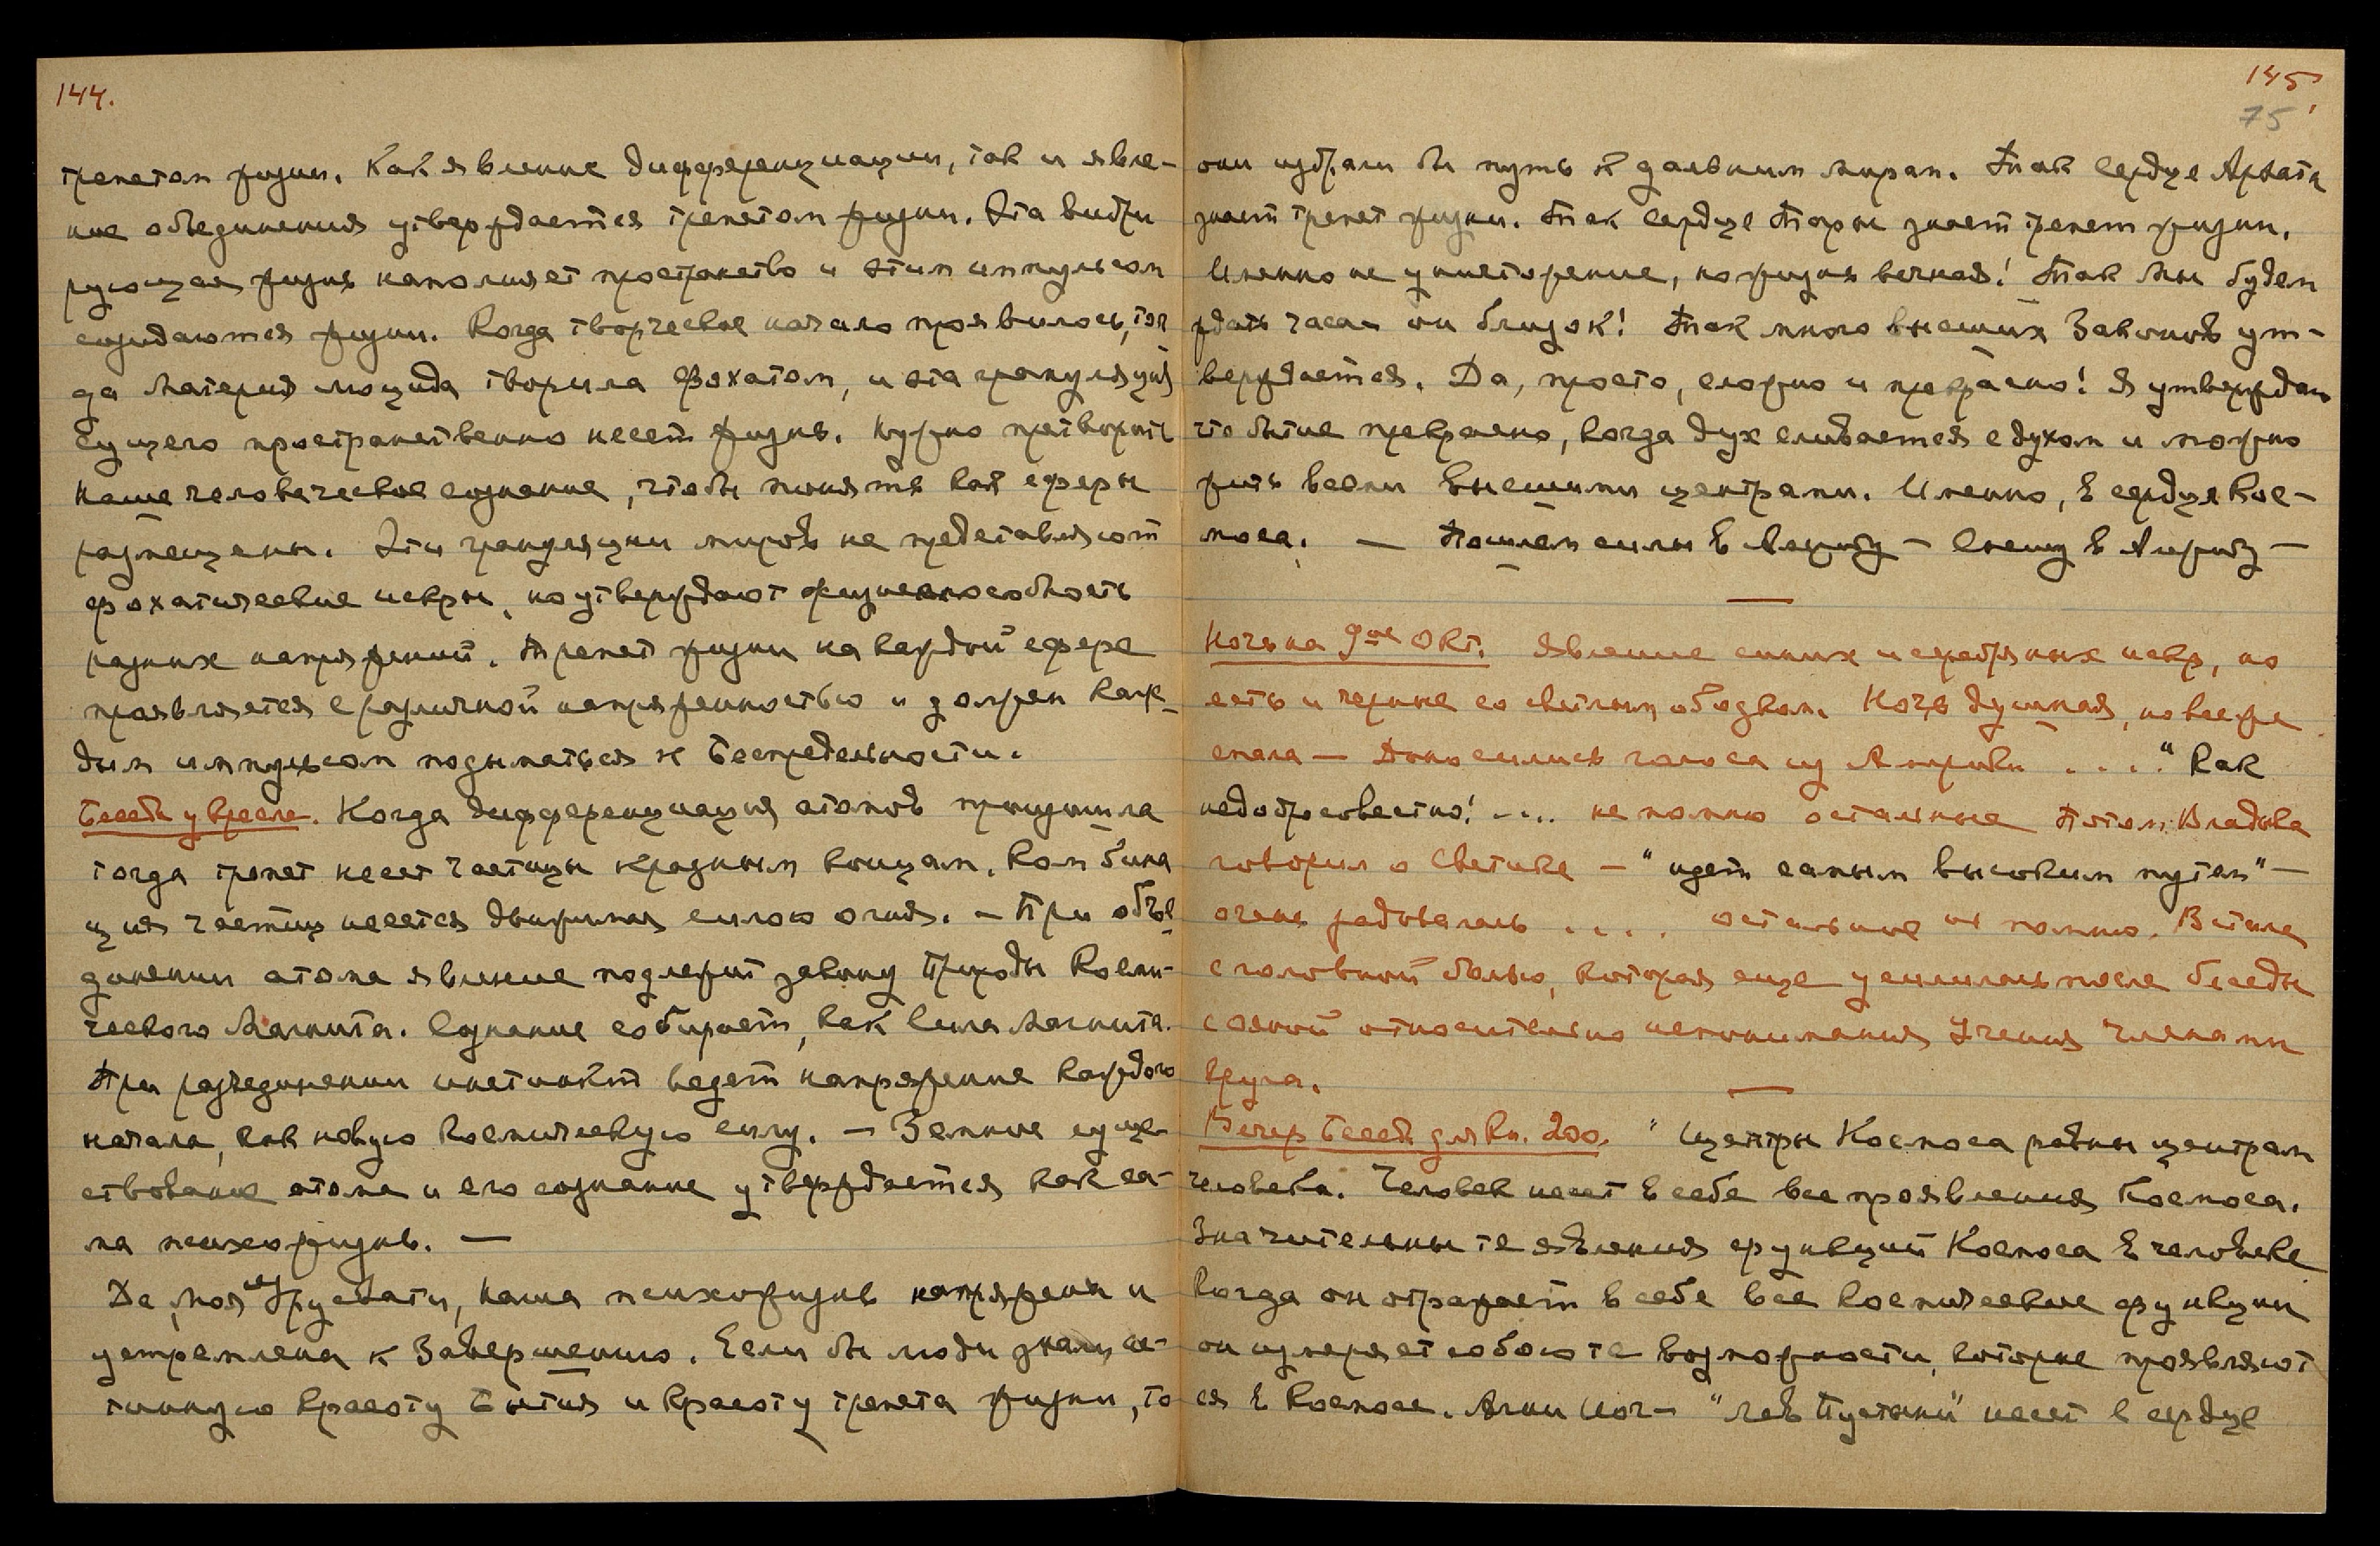 144.
трепетом жизни. Как явление дифференциации, так и явле-
ние объединения утверждается трепетом жизни. Эта вибри
рующая жизнь наполняет пространство и этим импульсом
созидаются жизни. Когда творческое начало проявилось, тог
да Материя люцида творила Фохатом, и эта грануляция
Сущего пространственно несет жизнь. Нужно претворить
наше человеческое сознание, чтобы понять как сферы
размещены. Эти грануляции миров не представляют
фохатические искры, но утверждают жизнеспособность
разных напряжений. Трепет жизни на каждой сфере
проявляется с различной напряженностью и должен каж-
дым импульсом подыматься к Беспредельности.
Беседа у кресла. Когда дифференциация атомов
тогда трепет несет частицы к разным концам. Комбина
ция частиц несется движимая силою огня. - При объе
динении атома явление подлежит закону Природы Косми-
ческого Магнита. Сознание собирает, как Сила Магнита.
При разъединении инстинкт ведет напряжение каждого
начала, как новую космическую силу. - Земное суще-
ствование атома и его сознание утверждается как са-
ма психожизнь. -
Да, Моя Урусвати, наша психожизнь напряжена и
устремлена к Завершению. Если бы люди знали ис-
тинную красоту Бытия и красоту трепета жизни, то
145
75
они избрали бы путь к дальним мирам. Так Сердце Архата
знает трепет жизни. Так Сердце Тары знает трепет жизни.
Именно не уничтожение, но жизнь вечная! Так Мы будем
ждать часа - он близок! Так много высших Законов ут-
верждается. Да, просто, сложно и прекрасно! Я утверждаю
что бытие прекрасно, когда дух сливается с духом и можно
жить всеми Высшими центрами. Именно, в сердце Кос-
моса. - Пошлем силы в - Спешу в -
Ночь на 9ое Окт. Явление синих и серебряных искр, но
есть и черные со светлым ободком. Ночь душная, но все же
спала - Доносились голоса из Америки . . . . " Как
недобросовестно! .... не помню остальное Потом Владыка
говорил о Светике - "идет самым высоким путем" -
очень радовалась . . . . остальное не помню. Встала
с головной болью, которая еще усилилась после беседы
с относительно непонимания Учения членами
круга.
Вечер Беседа для Кн. 200. " Центры Космоса равны центрам
человека. Человек несет в себе все проявления Космоса.
Значительны те явления функций Космоса в человеке
Когда он отражает в себе все космические функции
он измеряет собою те возможности, которые проявляют
ся в Космосе. Агни Йог - "Лев Пустыни" несет в сердце